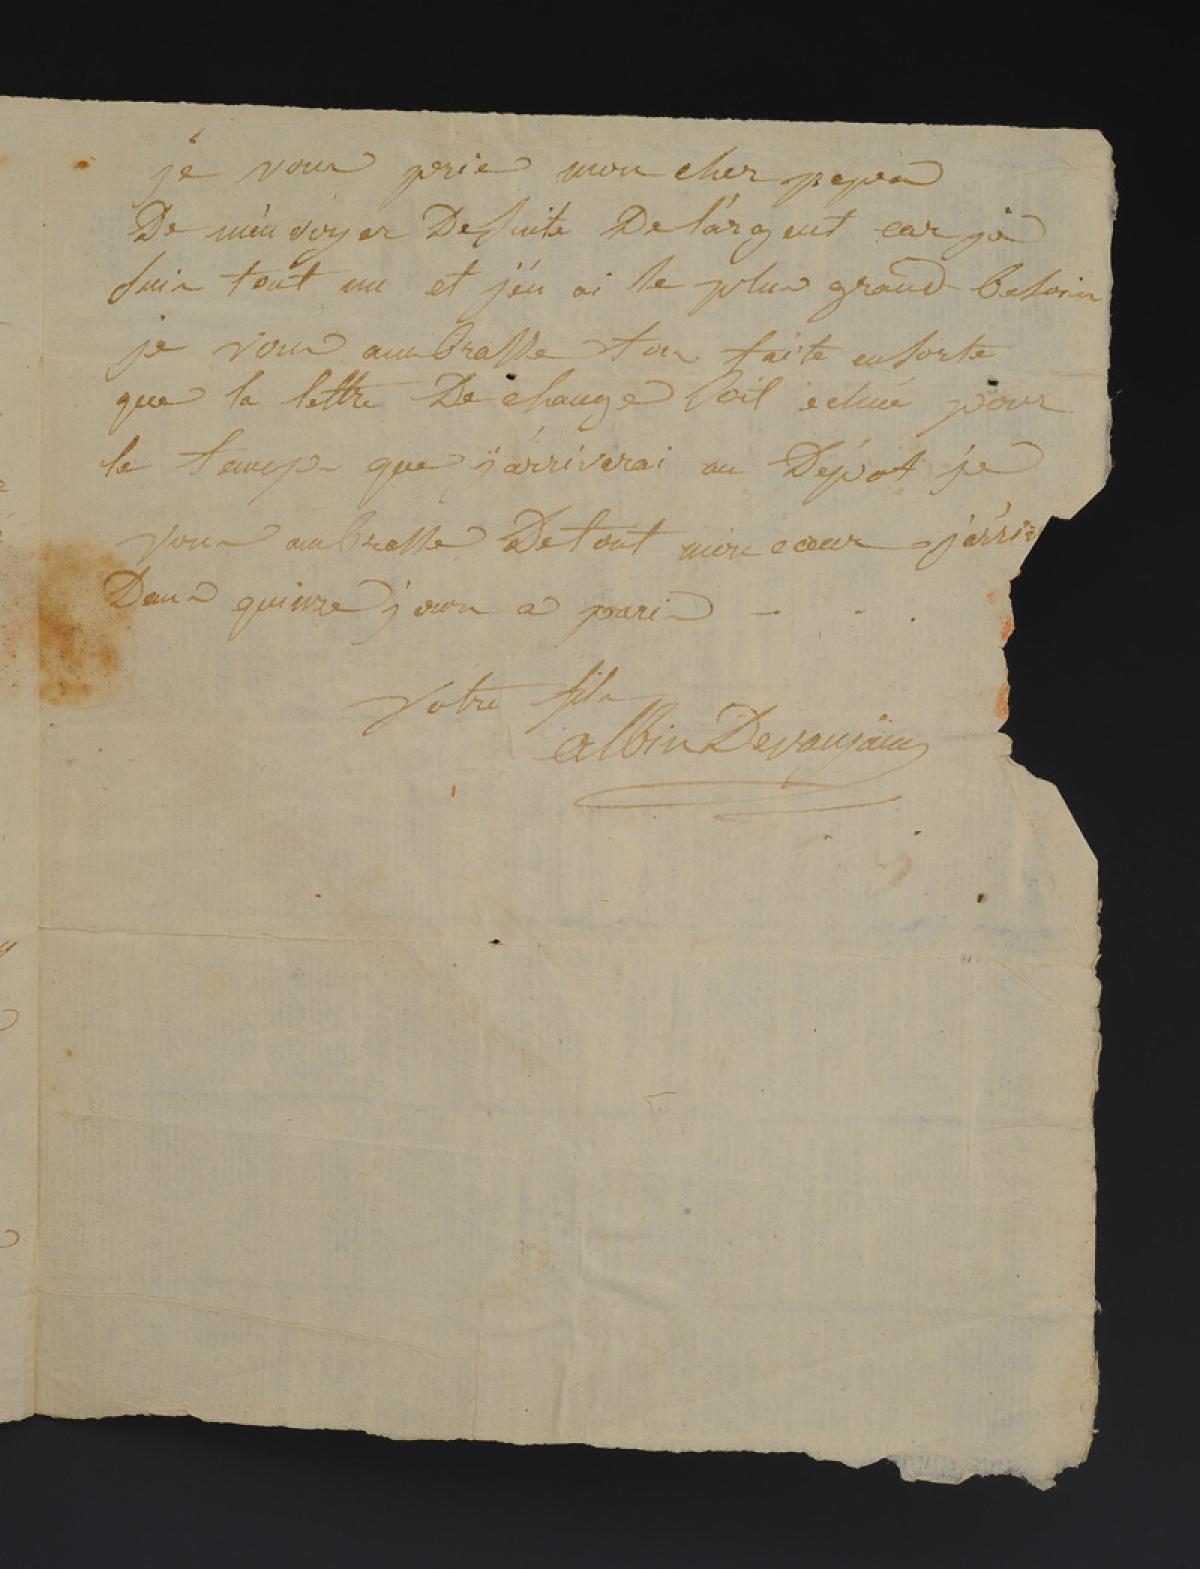 je vous prie mon cher papa
De m'en voyer De suite De l'argent car je
suis tout nu et j'en ai le plus grand besoin
je vous ambrasse tous faite ensorte
que la lettre De change soit échue pour
le temps que j'arriverai au Dépot je
vous ambrasse De tout mon coeur j'arriv
Dans quinze jours a paris - - .
Votre fils
albin Devaujain